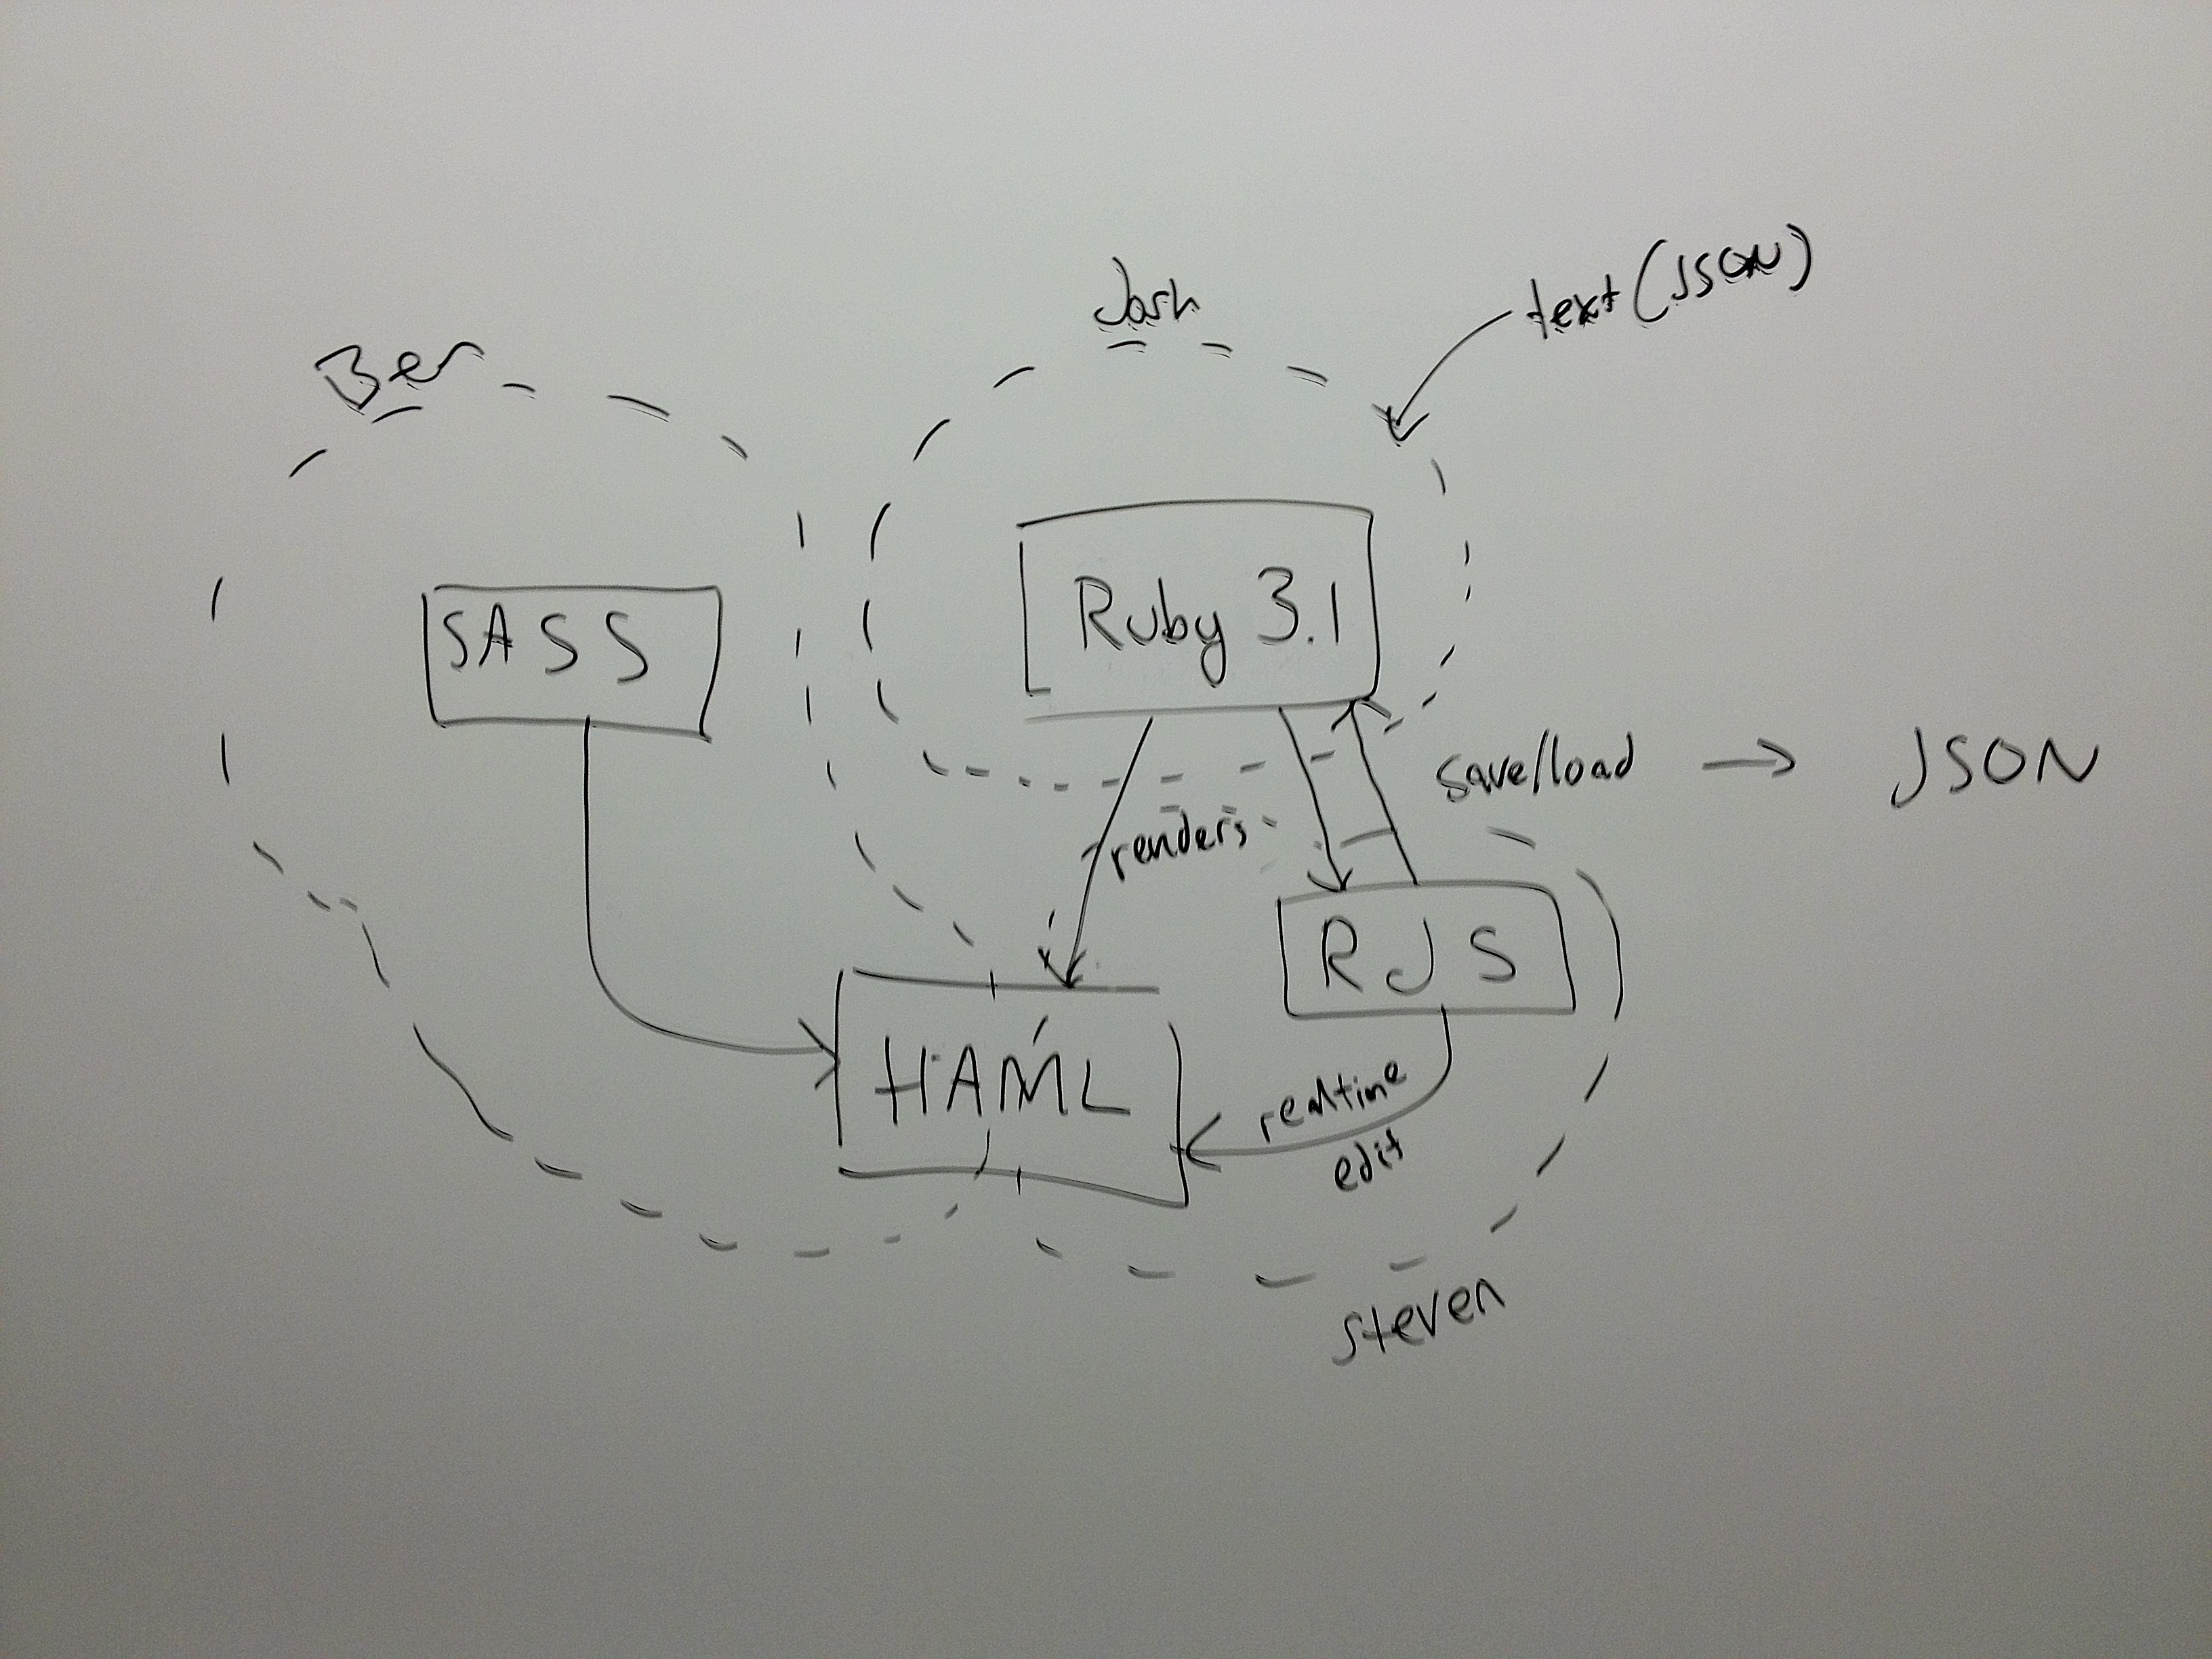 Josh
text (JSON)
Ben
Ruby 3.1
SASS
save/load → JSON
renders
RJS
HAML
realtime
edit
steven